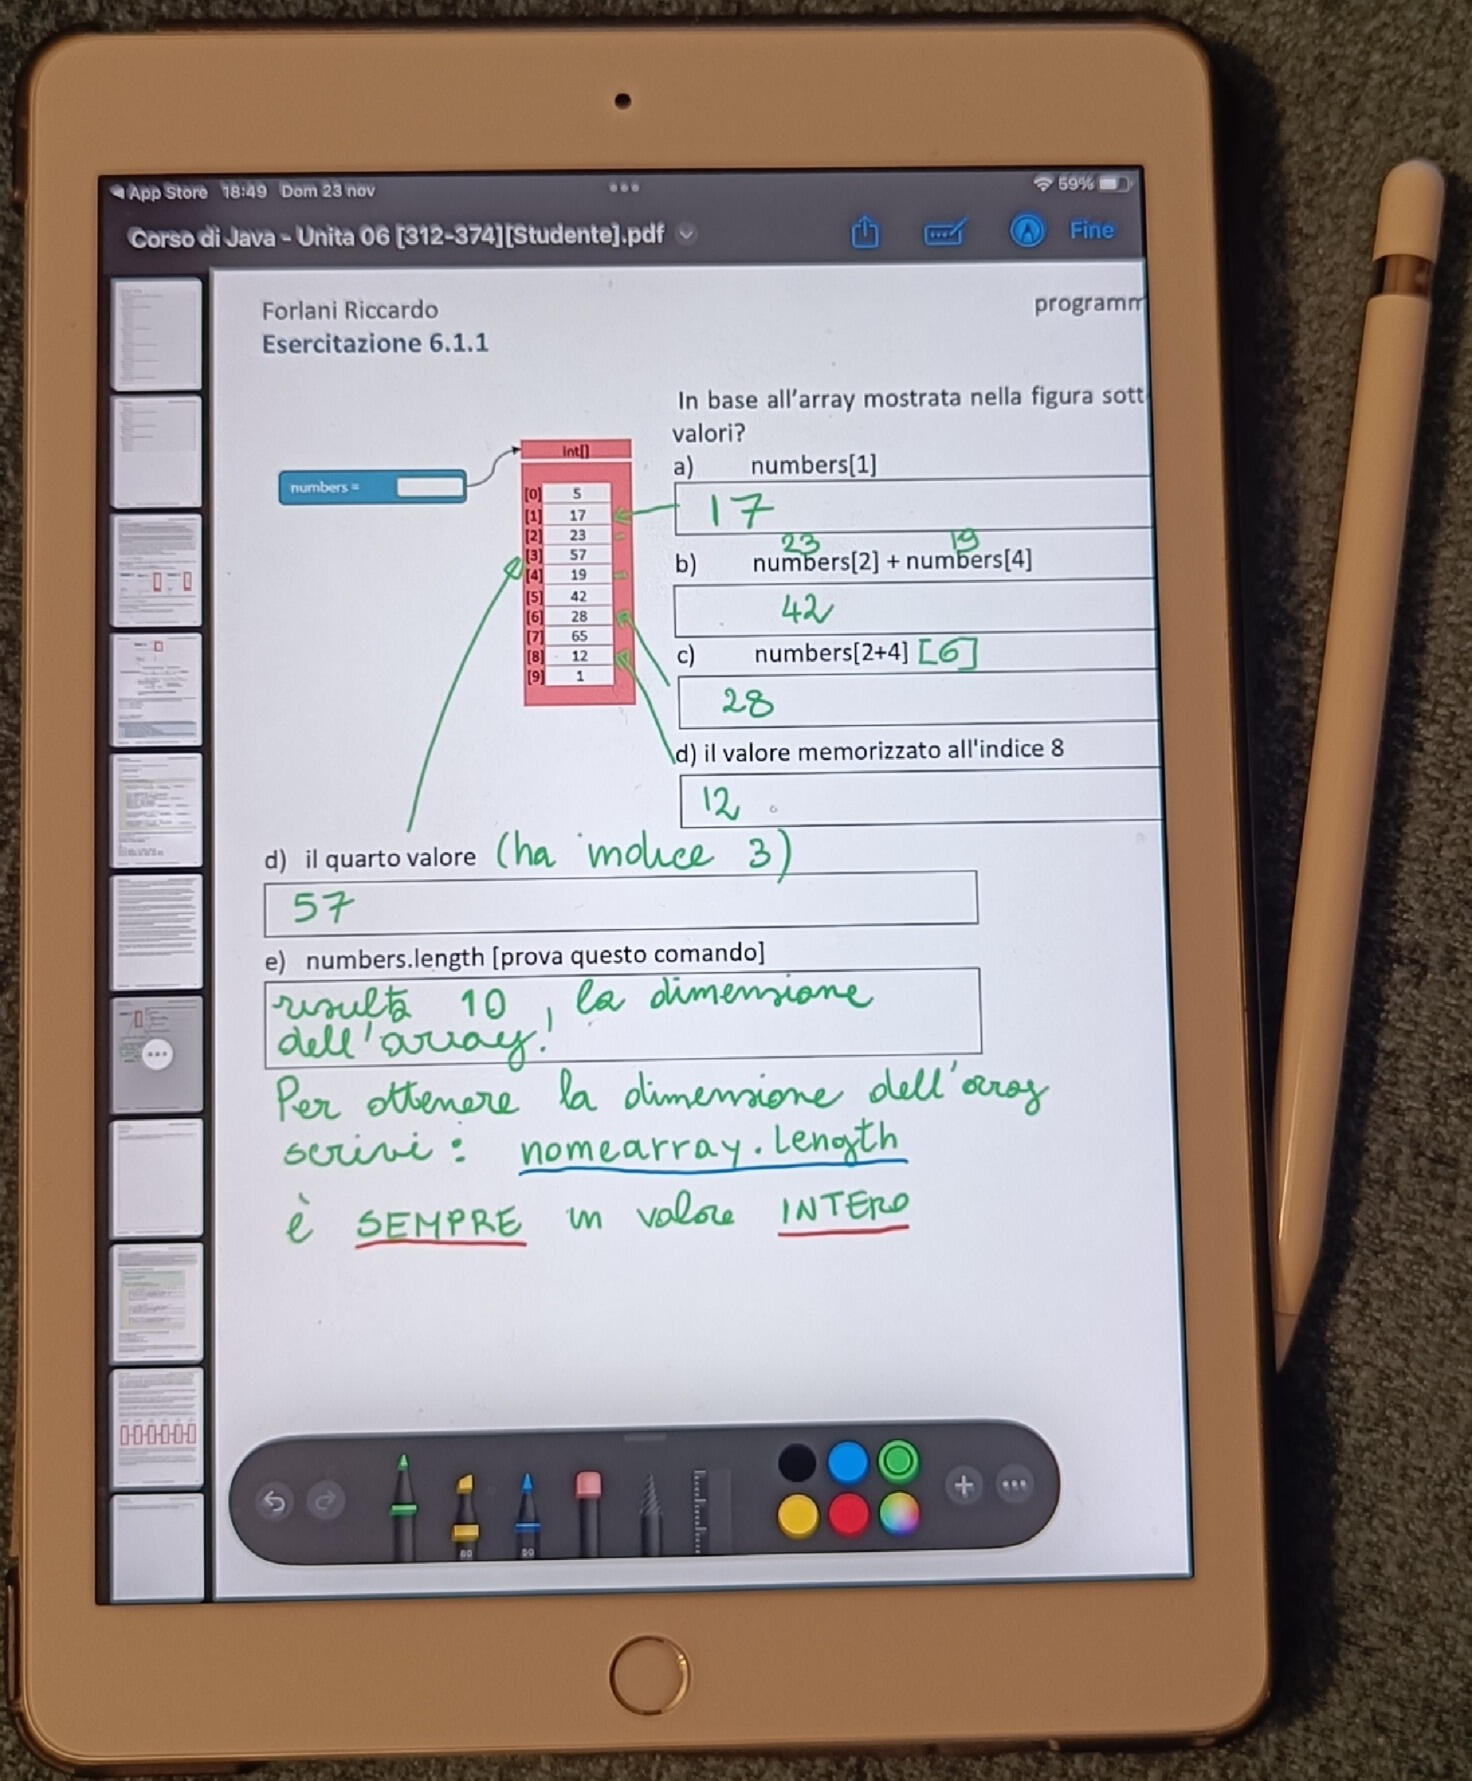 App Store 18:49 Dom 23 nov
59%
Corso di Java - Unita 06 [312-374][Studente].pdf
Fine
Forlani Riccardo
programm
Esercitazione 6.1.1
In base all'array mostrata nella figura sott
valori?
int[]
numbers =
[0] 5
[1] 17
[2] 23
[3] 57
[4] 19
[5] 42
[6] 28
[7] 65
[8] 12
[9] 1
a) numbers[1]
17
23 19
b) numbers[2] + numbers[4]
42
c) numbers[2+4] [6]
28
d) il valore memorizzato all'indice 8
12
d) il quarto valore (ha indice 3)
57
e) numbers.length [prova questo comando]
risulta 10, la dimensione
dell'array!
Per ottenere la dimensione dell'array
scrivi: nomearray.length
è SEMPRE un valore INTERO
80 50